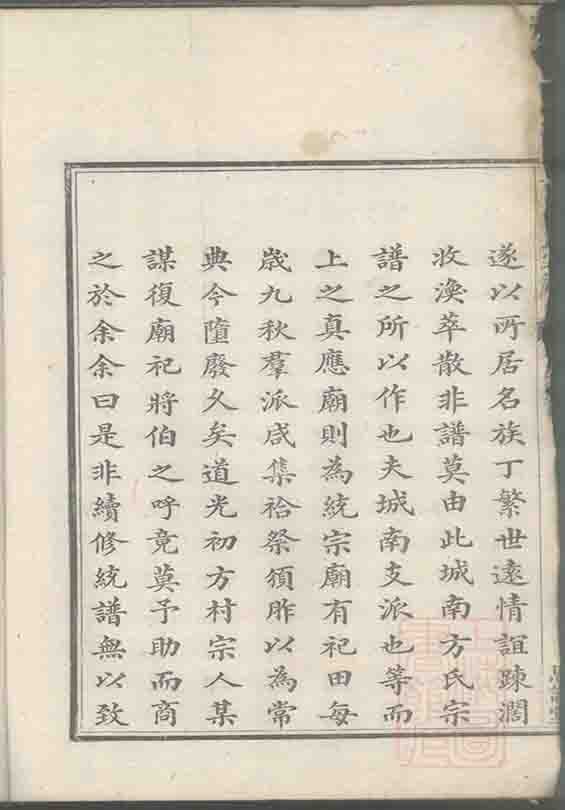 遂以所居名族丁繁世遠情誼踈濶
收渙萃散非譜莫由此城南方氏宗
譜之所以作也夫城南支派也等而
上之真應廟則為統宗廟有祀田每
歲九秋羣派咸集祫祭頒胙以為常
典今墮廢久矣道光初方村宗人某
謀復廟祀將伯之呼竟莫予助而商
之於余余曰是非續修統譜無以致